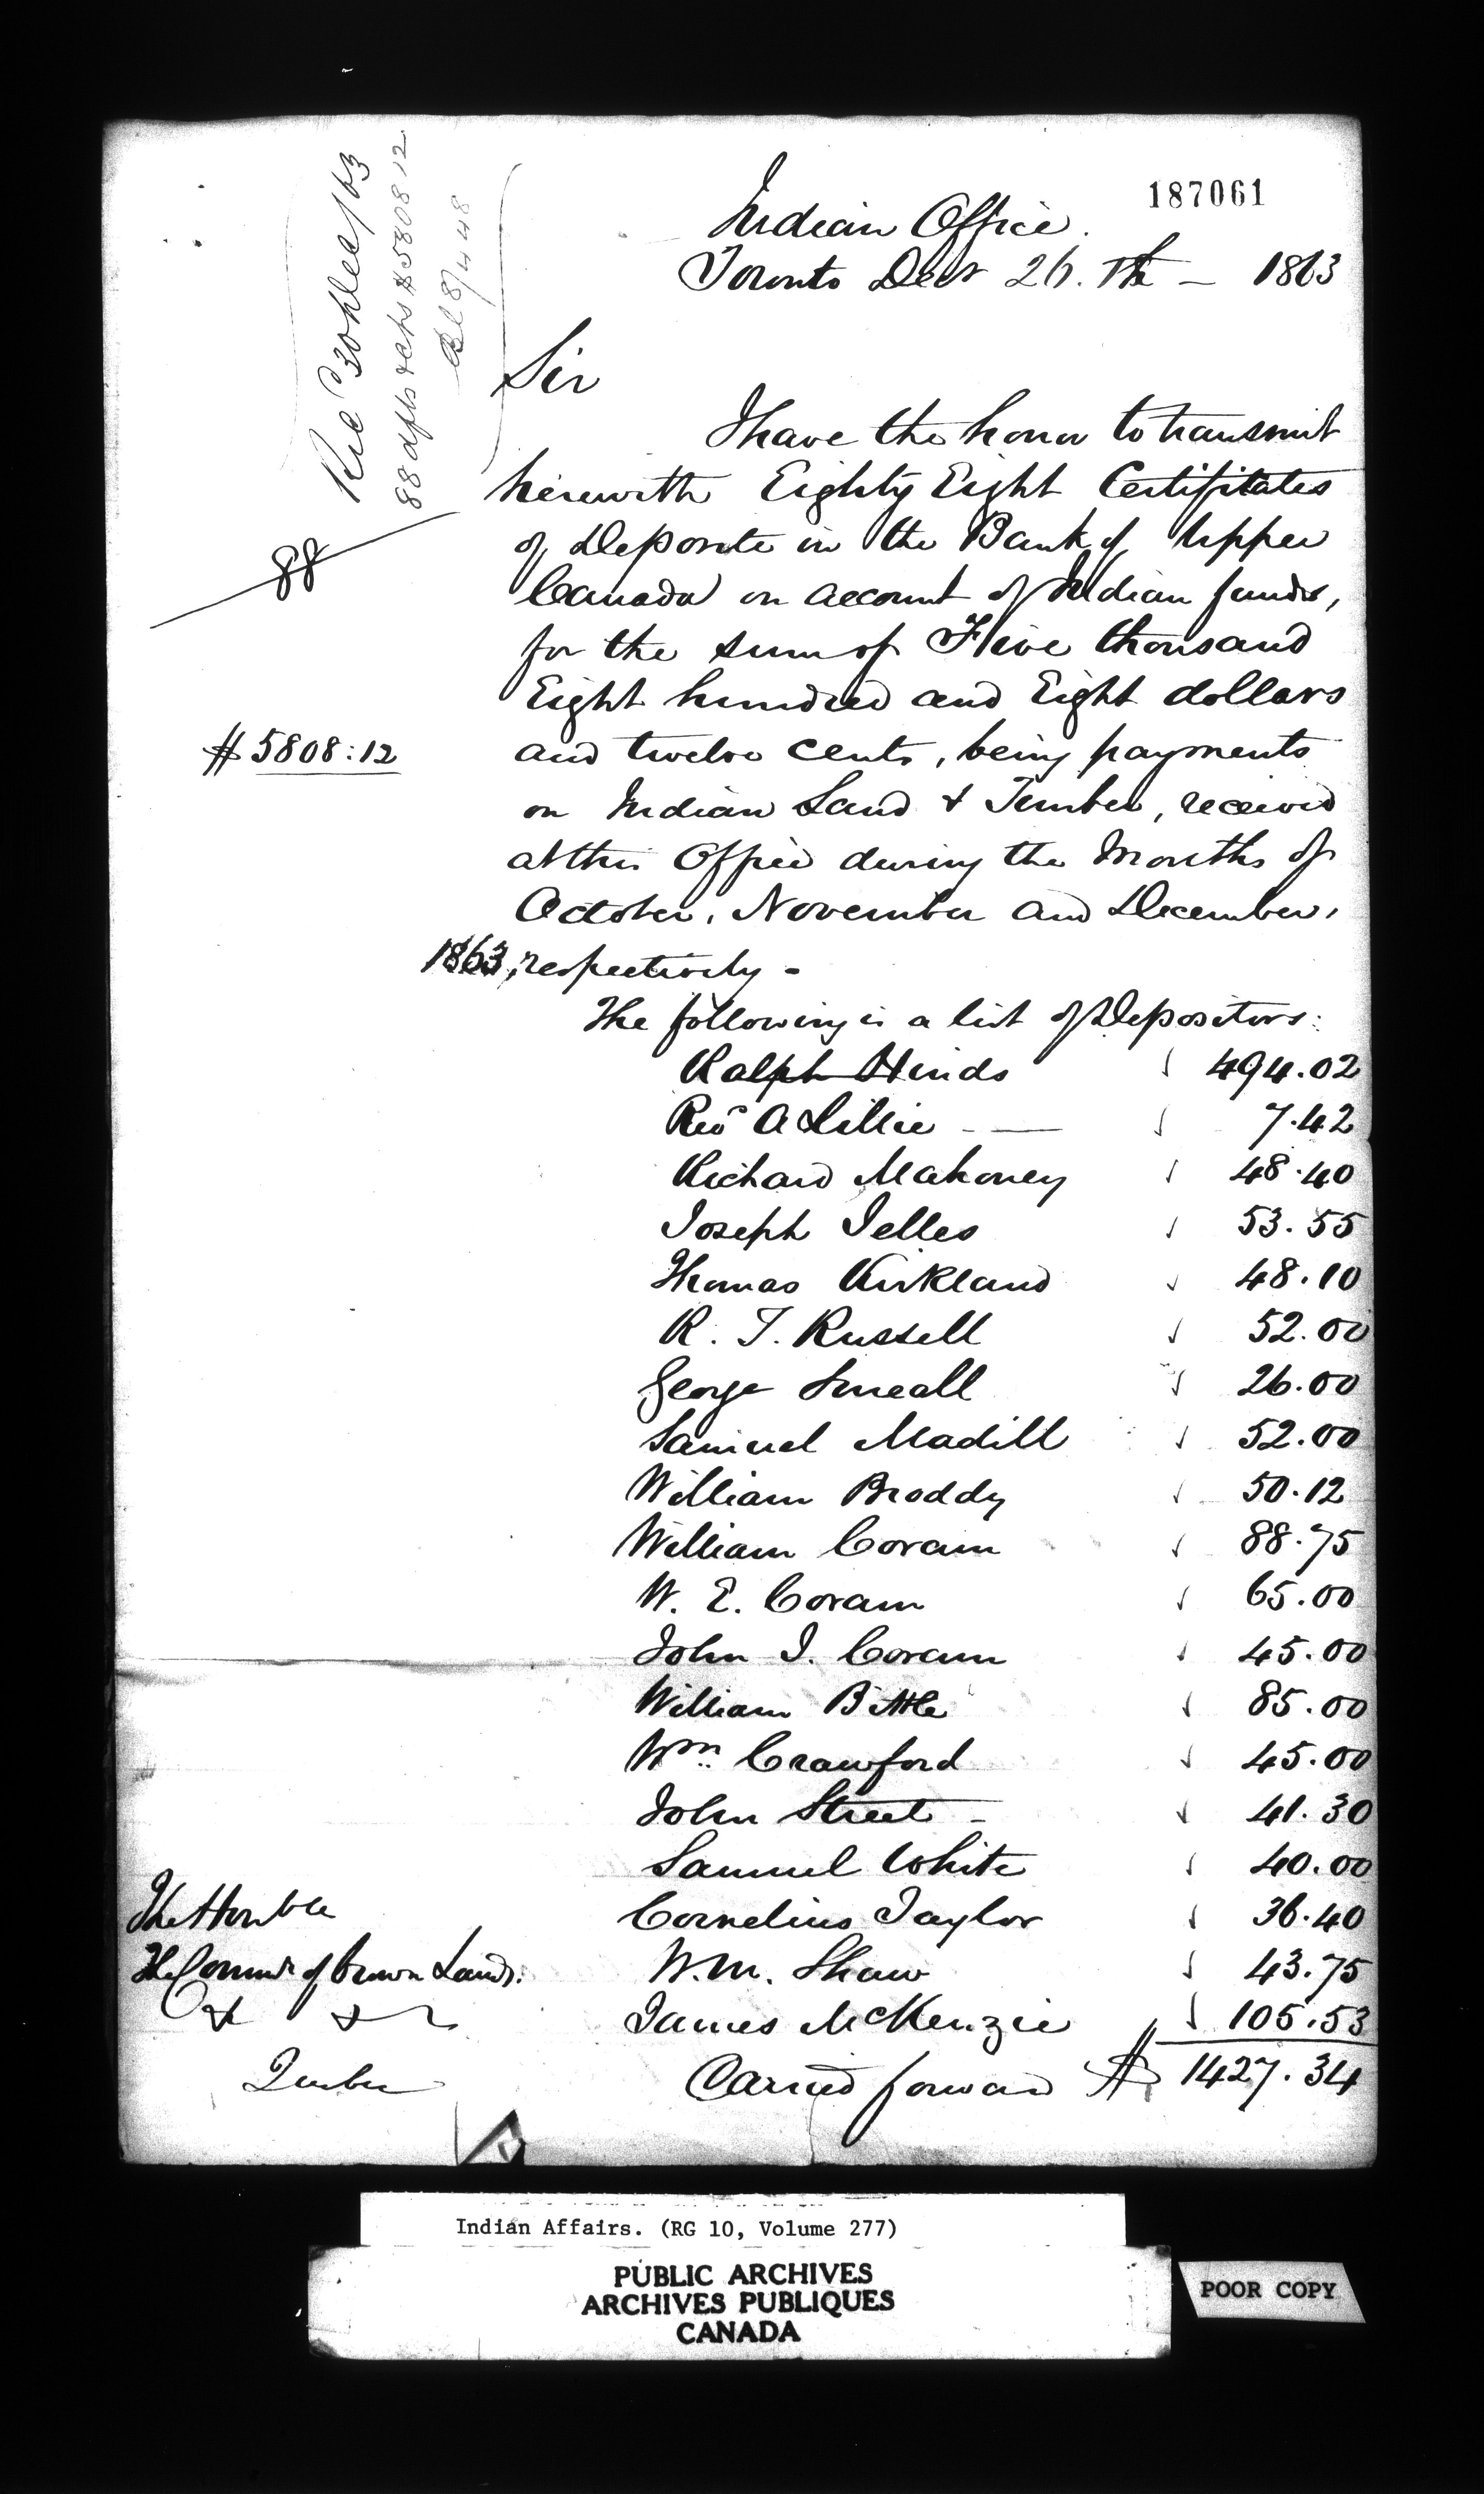 187061
Indian Office.
Toronto Decr 26. th — 1863
Recd 30th Dec/63
88 dfts & cts $5808 12
88
Sir
I have the honor to transmit
herewith Eighty Eight Certifitates
of Deposite in the Bank of Upper
Canada on account of Indian funds,
for the sum of Five thousand
Eight hundred and Eight dollars
$5808:12
and twelve cents, being payments
on Indian Land & Timber, received
at this Office during the Months of
October, November and December,
1863, respectively -
The following is a list of Depositors:
Ralph Hinds 494.02
Revd A Lillie — 7.42
Richard Mahoney 48.40
Joseph Jelles 53.55
Thomas Kirkland 48.10
R. T. Russell 52.00
George Smeall 26.00
Samuel Madill 52.00
William Broddy 50.12
William Coram 88.75
W. E. Coram 65.00
John J. Coram 45.00
William Bettle 85.00
Wm. Crawford 45.00
John Street - 41.30
Samuel White 40.00
Cornelius Taylor 36.40
W.M. Shaw 43.75
James McKenzie 105.53
Carried forward $ 1427.34
The Honble
The Commr of Crown Lands.
& &
Quebec
Indian Affairs. (RG 10, Volume 277)
PUBLIC ARCHIVES
ARCHIVES PUBLIQUES
CANADA
POOR COPY